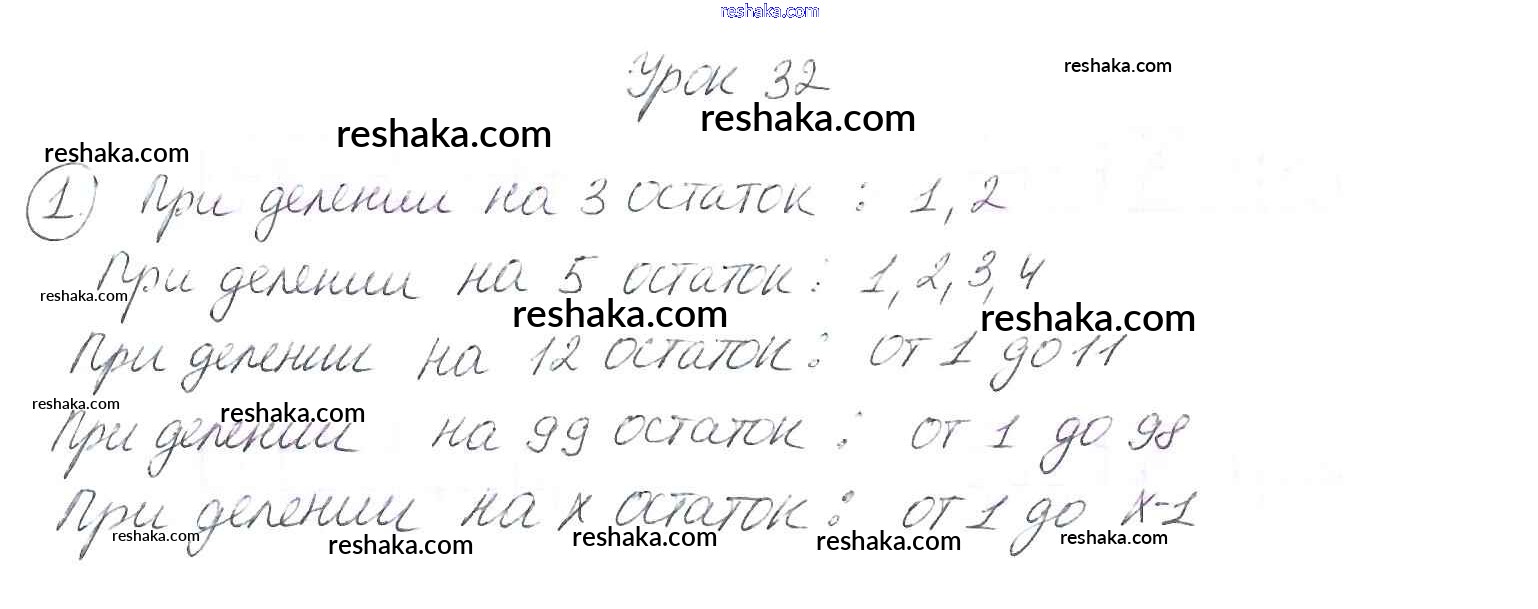 reshaka.com
Урок 32
reshaka.com
reshaka.com
reshaka.com
reshaka.com
1. При делении на 3 остаток: 1, 2
При делении на 5 остаток: 1, 2, 3, 4
reshaka.com
reshaka.com
reshaka.com
При делении на 12 остаток: от 1 до 11
reshaka.com
reshaka.com
При делении на 99 остаток: от 1 до 98
При делении на x остаток: от 1 до x-1
reshaka.com
reshaka.com
reshaka.com
reshaka.com
reshaka.com